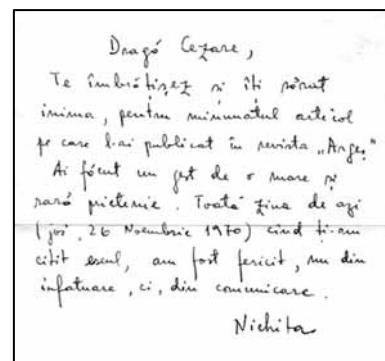 Dragó Cezare,
Te îmbrățișez și îți sărut
inima, pentru minunatul articol
pe care l-ai publicat în revista „Argeș"
Ai făcut un gest de o mare și
rară prietenie. Toată ziua de azi
(joi, 26 Noembrie 1970) cînd ți-am
citit eseul, am fost fericit, nu din
infatuare, ci, din comunicare.
Nichita